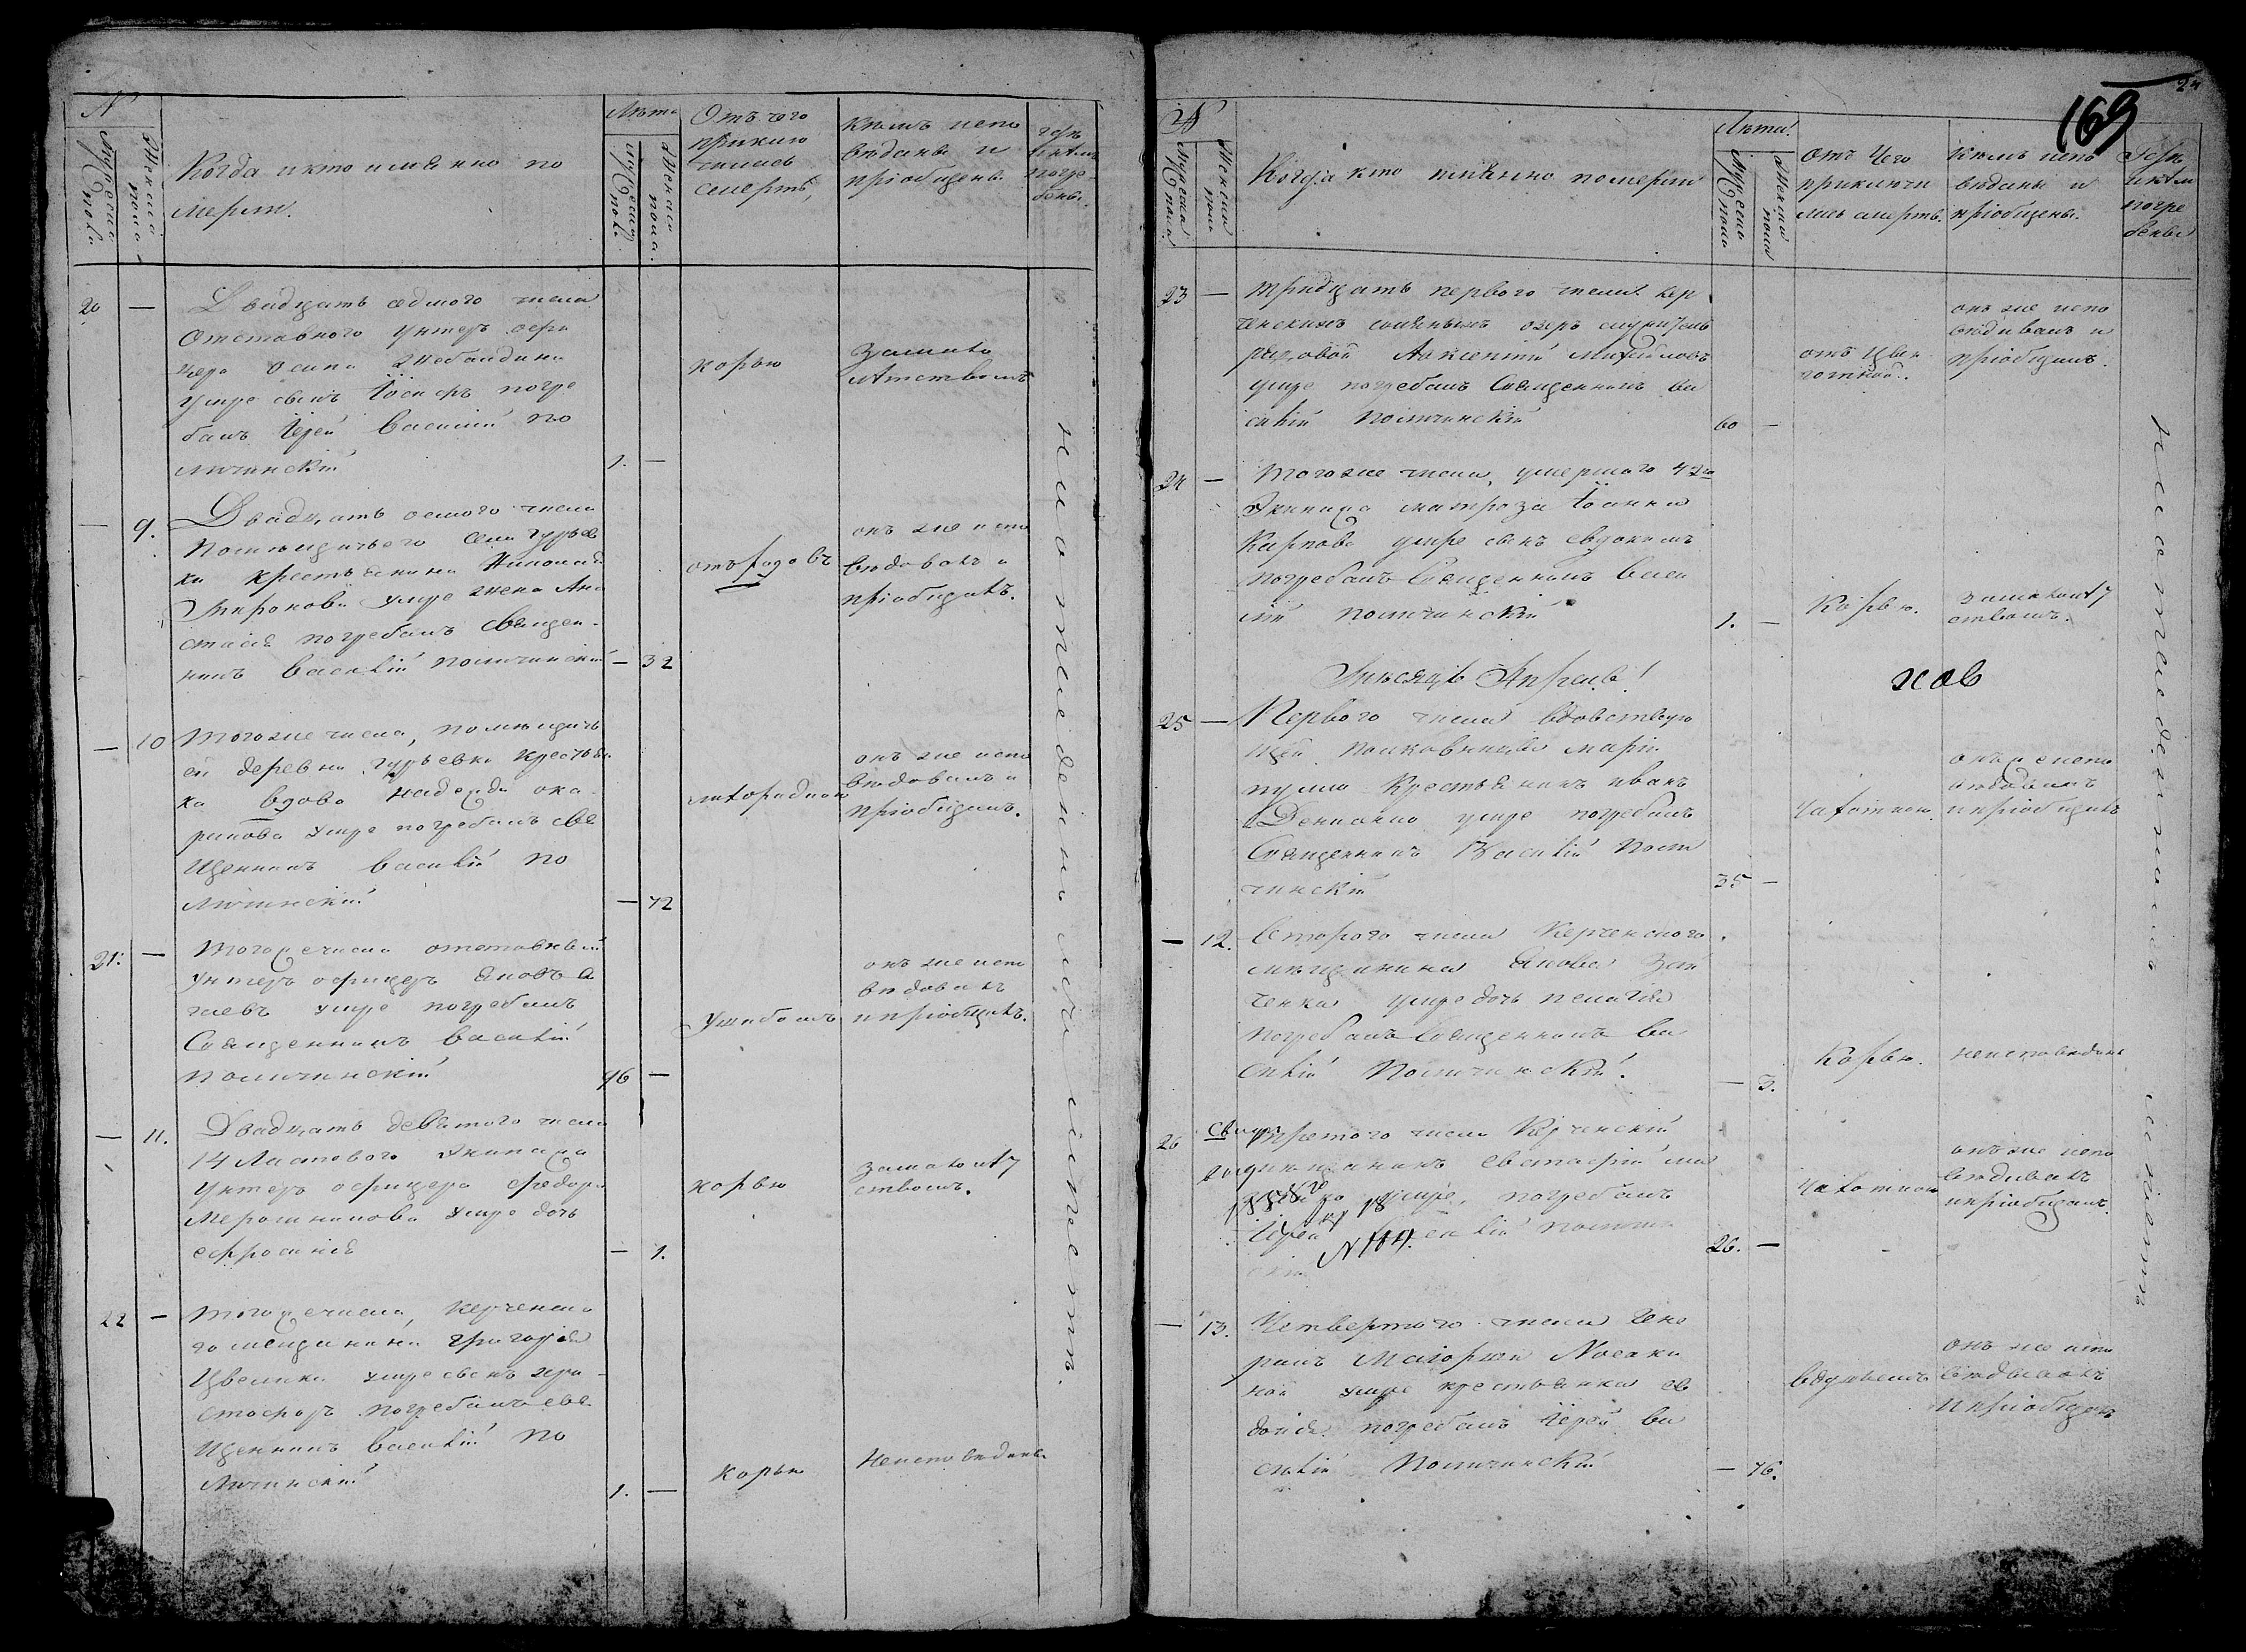 N
Мужеска пола
Женска пола
Когда и кто имянно по
мерли.
Лѣта
Мужеска пола
Женска пола.
Отъ чего
приклю
чилась
смерть,
Кѣмъ испо
вѣданы и
пріобщены.
гдѣ
и кѣмъ
погре
бены.
20 —
Двадцать седмого числа
Отставного унтеръ офи
цера Осипа
умре сынъ Іосифъ погре
балъ Іерей Василій По
личинскій
1. —
корью
За мало
лѣтствомъ
— 9.
Двадцать осмого числа
помѣщичьего села Гурьев
ки крестьянина Николая
Миронова умре жена Ана
стасія погребалъ священ
никъ Василій Поличинскій
— 32
отъ родовъ
онъ же испо
вѣдовалъ и
пріобщалъ.
— 10
Того же числа, помѣщичь
ей деревни Гурьевки крестьян
ка вдова Надежда
умре погребалъ свя
щенникъ Василій По
личинскій
— 72
лихорадкою
онъ же испо
вѣдовалъ и
пріобщалъ.
21. —
Того же числа отставный
унтеръ офицеръ Яковъ
умре погребалъ
Священникъ Василій
Поличинскій
46 —
Ушибомъ
онъ же испо
вѣдовалъ
и пріобщалъ.
— 11.
Двадцать девятого числа
14 Ластового Экипажа
унтеръ офицера Федора
Мерошникова умре дочь
Ефросинія
— 1.
корью
За малолѣт
ствомъ.
22 —
Того же числа, Керченска
го мещанина Григорія
Цвелика умре сынъ Хри
стофоръ погребалъ свя
щенникъ Василій По
личинскій
1. —
корью
Неисповѣданъ
на кладбищѣ
24
169
N
Мужеска пола
Женска пола
Когда кто имянно померли
Лѣта.
Мужеска пола
Женска пола
отъ чего
приключи
лась смерть.
Кѣмъ испо
вѣданы и
пріобщены.
Гдѣ
и кѣмъ
погре
бены
23 —
Тридцать первого числа Кер
ченскихъ соляныхъ озеръ служитель
рядовой Авксентій Михайловъ
умре погребалъ Священникъ Ва
силій Поличинскій
60 —
отъ цын
готной.
онъ же испо
вѣдивалъ и
пріобщалъ.
24 —
Того же числа, умершаго 42го
Экипажа матроза Іоанна
Карпова умре сынъ Евдокимъ
погребалъ Священникъ Васи
лій Поличинскій
1. —
Корью.
за малолѣт
ствомъ.
Мѣсяцъ Апрель!
25 —
Первого числа вдовствую
щей полковницы Маріи
крестьянинъ Иванъ
умре погребалъ
Священникъ Василій Поли
чинскій
35 —
Чахоткою.
онъ же испо
вѣдовалъ
и пріобщалъ
— 12.
Второго числа Керченского
мѣщанина Якова Зай
ченка умре дочь Пелагія
погребалъ Священникъ Ва
силій Поличинскій.
— 3.
Корью.
неисповѣдана
26
Третого числа Керченскій
мѣщанинъ Евстафій
умре, погребалъ
Іерей Василій Поличин
скій
N 104.
26. —
Чахоткою
онъ же испо
вѣдивалъ
и пріобщалъ.
— 13.
Четвертого числа Гене
ралъ Маіорши
умре крестьянка Ев
докія погребалъ Іерей Ва
силій Поличинскій
— 76.
онъ же испо
вѣдывалъ
и пріобщалъ
на кладбищѣ